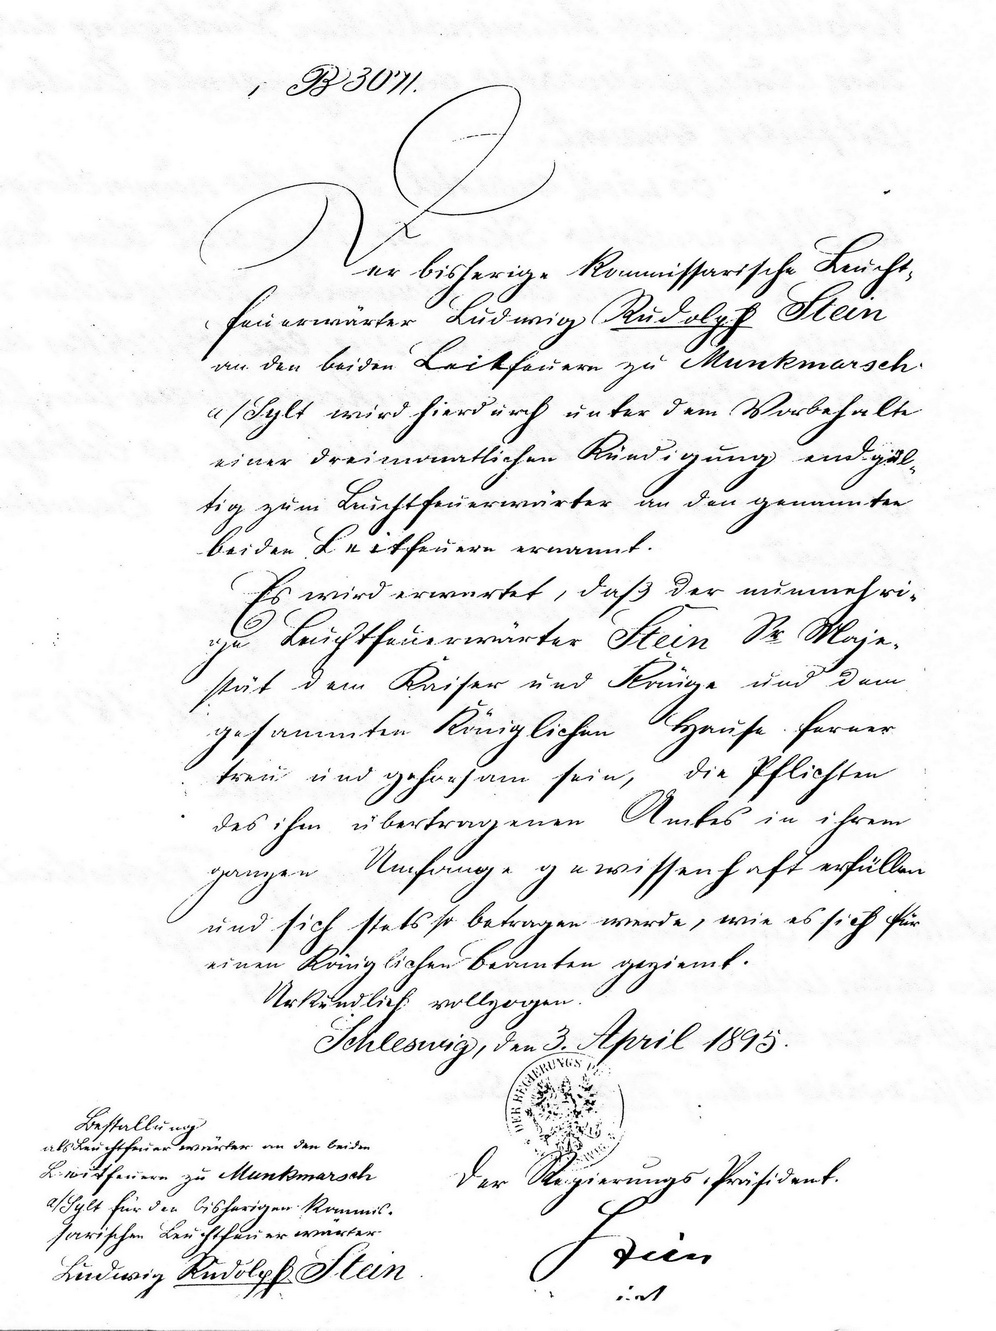 B 3071.
Der bisherige kommissarische Leucht-
feuerwärter Ludwig Rudolph Stein
an den beiden Leitfeuern zu Munkmarsch
a/Sylt wird hierdurch unter dem Vorbehalte
einer dreimonatlichen Kündigung endgül-
tig zum Leuchtfeuerwärter an den genannten
beiden Leitfeuern ernannt.
Es wird erwartet, daß der nunmehri-
ge Leuchtfeuerwärter Stein Sr Maje-
stät dem Kaiser und Könige und dem
gesammten Königlichen Hause ferner
treu und gehorsam sein, die Pflichten
des ihm übertragenen Amtes in ihrem
ganzen Umfange gewissenhaft erfüllen
und sich stets so betragen werde, wie es sich für
einen Königlichen Beamten geziemt.
Urkundlich vollzogen.
Schleswig, den 3. April 1895.
DER REGIERUNGS
Der Regierungs-Präsident.
Bestallung
als Leuchtfeuerwärter an den beiden
Leitfeuern zu Munkmarsch
a/Sylt für den bisherigen kommis-
sarischen Leuchtfeuerwärter
Ludwig Rudolph Stein